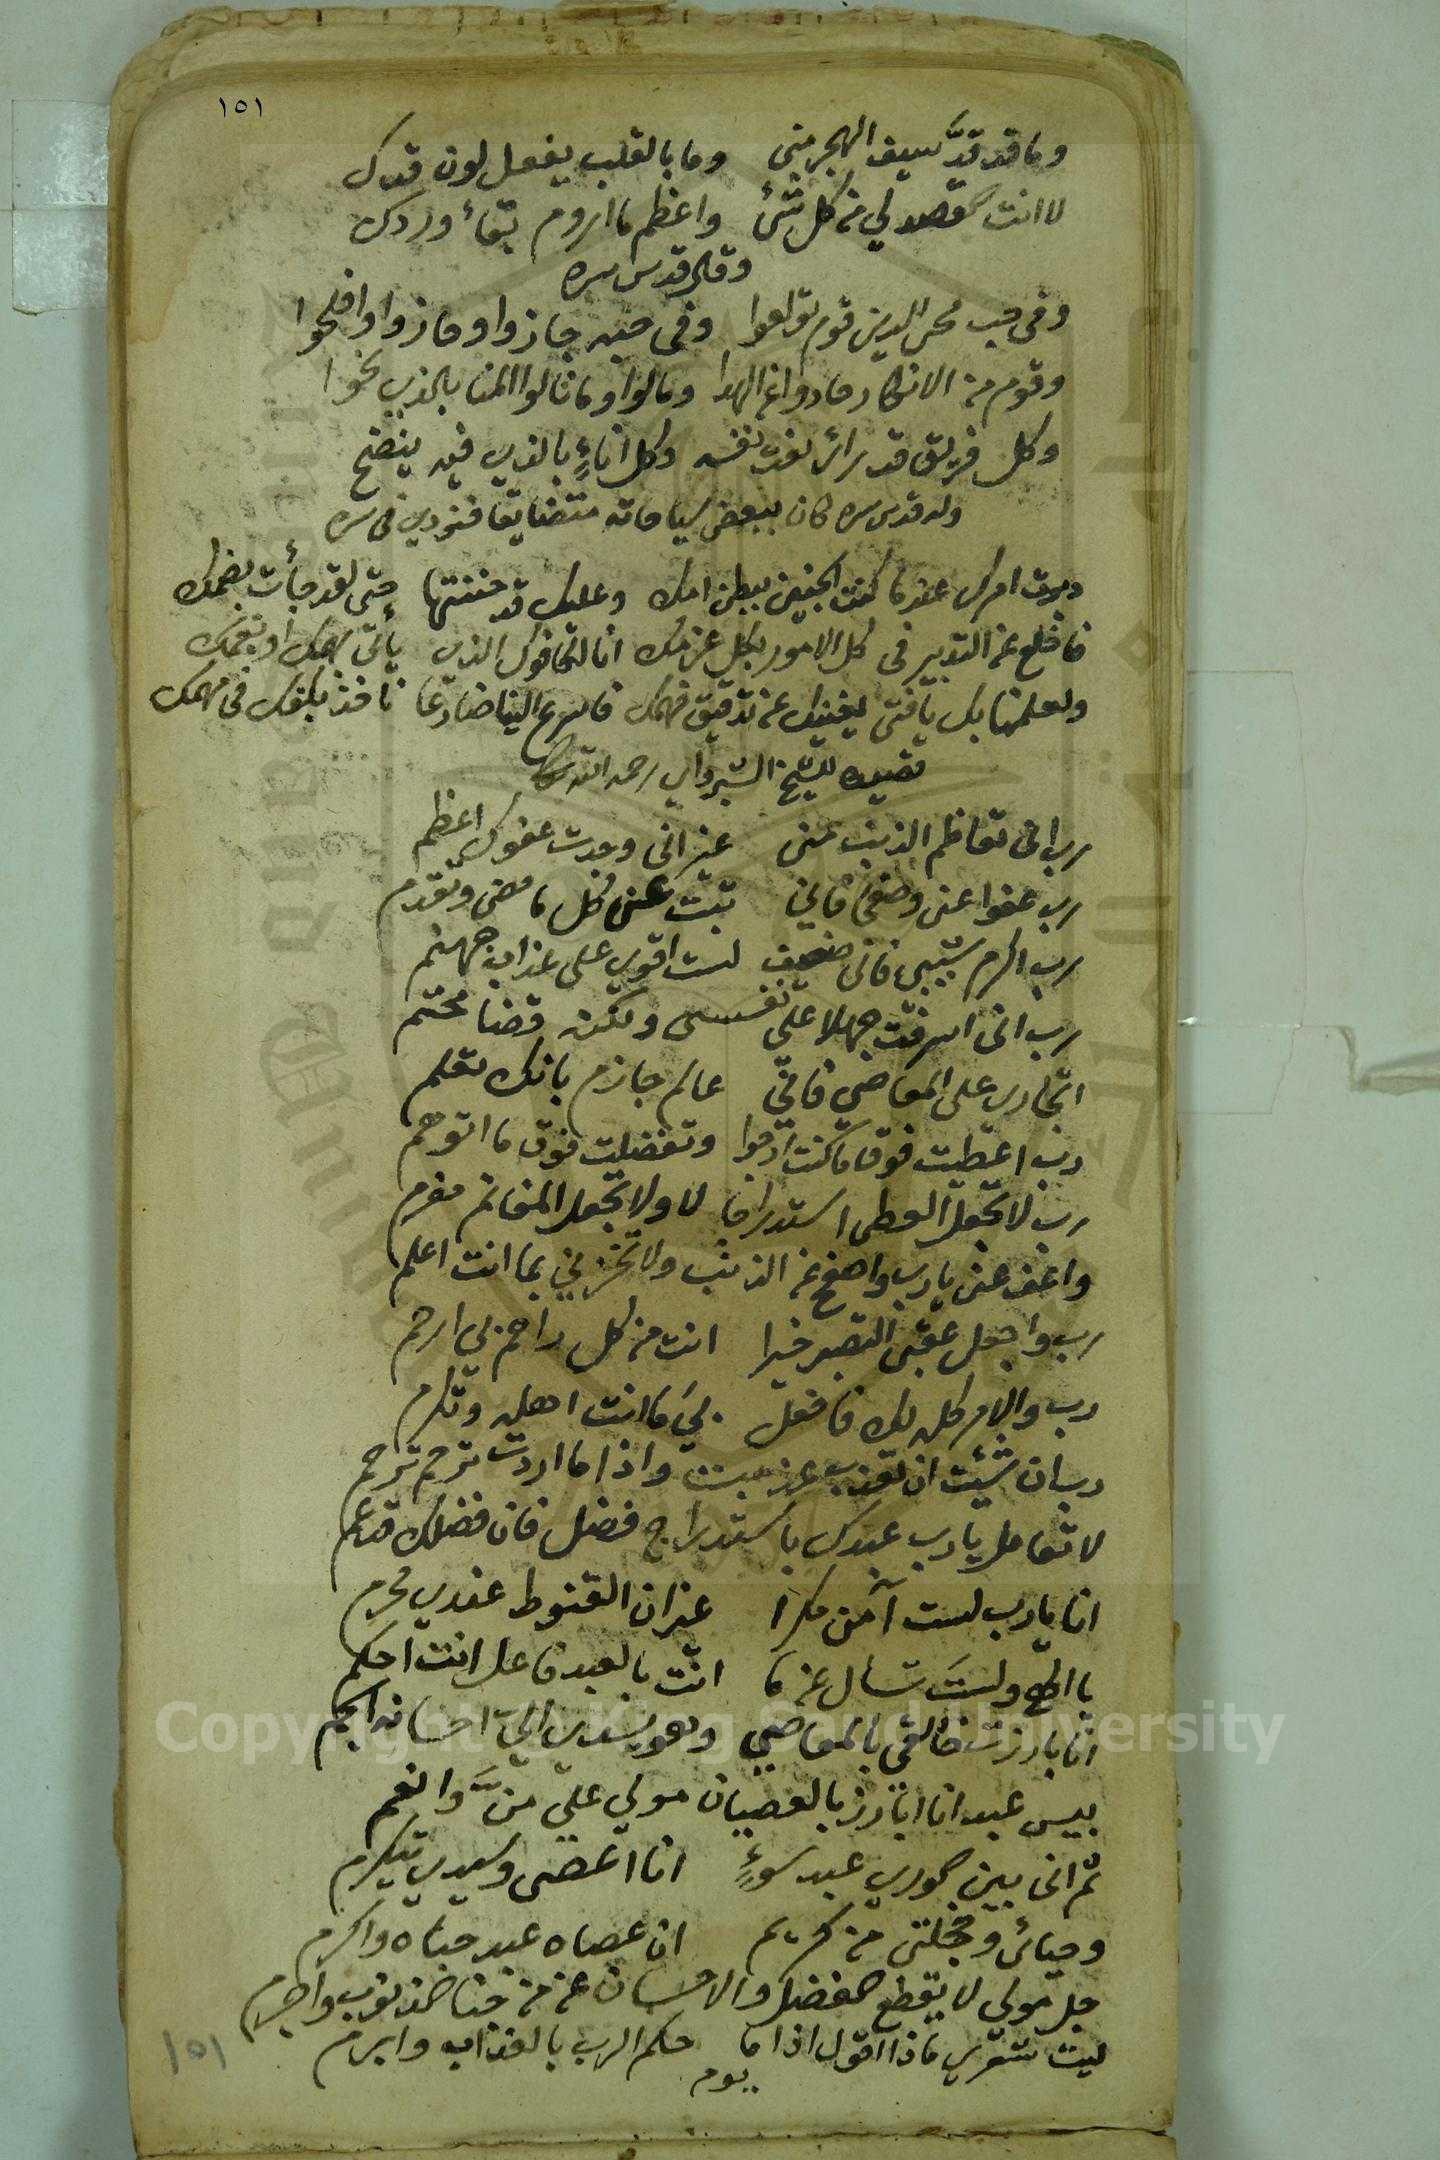 ١٥١
وما قد قدَّ سيف الهجر مني وما بالقلب يفعل لون قدك
لانت مقصد لي من كل شئ واعظم ما اروم بقاء وردك
وقال قدس سره
وفي حب محي الدين قوم تولعوا وفي حبه جازوا وحازوا وافلحوا
وقوم من الانكار حادوا عن الهدا ومالوا وما نالوا المنا بالذي نحوا
وكل فريق قد نفسه وكل اناءٍ بالذي فيه ينضح
وله قدس سره كان ببعض سياحاته متضايقا فنودي في سره
دبرت امرك عندما كنت الجنين ببطن امك وعليك قد حننتها حتى لقد جأت بضمك
فاخلع عن التدبير في كل الامور بكل عزمك انا لنكافوك الذي يأتي بهمك او بغمك
ولعلمنا بك يا فتى يغنيك عن تدقيق فهمك فاسرع الينا ضارعا نافذ نكفك في مهمك
قصيده للشيخ الشبراوي رحمه الله
رب اني تعاظم الذنب مني غير اني وجدت عفوك اعظم
رب عفوا عني وصفحا فاني تبت عن كل ما مضى وتقدم
رب اكرم شيبي فاني ضعيف لست اقوى على عذاب جهنم
رب اني اسرفت جهلا على نفسي ولكنه قضا محتم
اتجارى على المعاصي فاني عالم جازم بانك تعلم
رب اعطيت فوق ما كنت ارجوا وتفضلت فوق ما اتوهم
رب لا تجعل العطا استدراجا لا ولا تجعل المغانم مغرم
واعف عني يا رب واصفح عن الذنب ولا تخزني بما انت اعلم
رب واجعل عقبى التصبر خيرا انت من كل راحم بي ارحم
رب والامر كله لك فافعل بي ما انت اهله وتكرم
رب ان شئت ان تعذب عذبت واذا ما اردت ترحم ترحم
لا تعامل يا رب عبدك باستدراج فضل فان فضلك قد عم
انا يا رب لست آمن مكرا غير ان القنوط عندي محرم
يا الهي ولست تسأل عن ما انت بالعبد فاعل انت احكم
انا بارزت خالقي بالمعاصي وهو يسدي الي احسانه الجم
بيس عبد انا ابارز بالعصيان مولى علي منَّ وانعم
ثم اني بين الورى عبد سوءٍ انا اعصى وسيدي يتكرم
وحيائي وخجلتي من كريم ان عصاه عبد حباه واكرم
جل مولى لا يقطع الفضل والاحسان عن من جنا ضمن نوب واجرم
ليت شعري ماذا اقول اذا ما حكم الرب بالعذاب وابرم
يوم
١٥١
Copyright © King Saud University